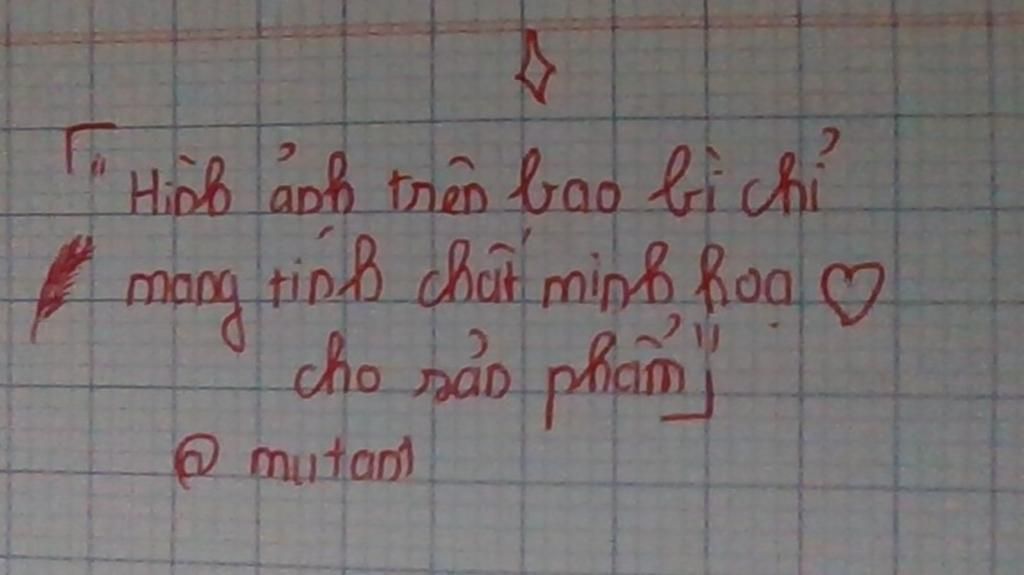 「"Hình ảnh trên bao bì chỉ
mang tính chất minh hoạ ♡
cho sản phẩm"」
@mutam